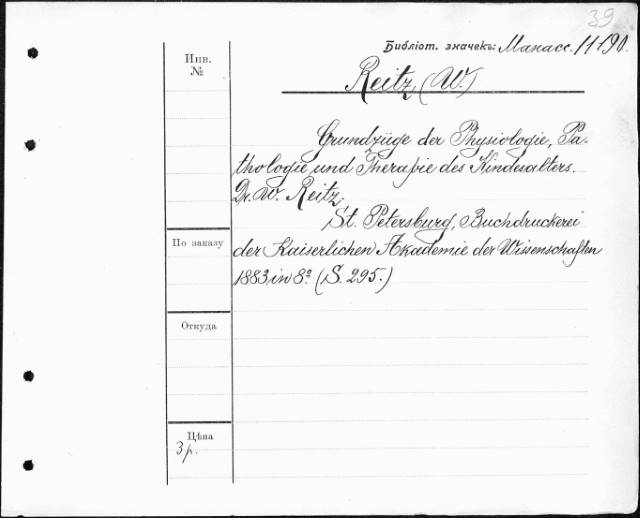 39
Библіот. значекъ: Манасс. 11190.
Инв.
№
Reitz, (W.)
Grundzüge der Physiologie, Pa-
thologie und Therapie des Kindesalters.
Dr. W. Reitz.
St. Petersburg, Buchdruckerei
По заказу
der Kaiserlichen Akademie der Wissenschaften
1883 in 8º (S. 295.)
Откуда
Цѣна
3 р.